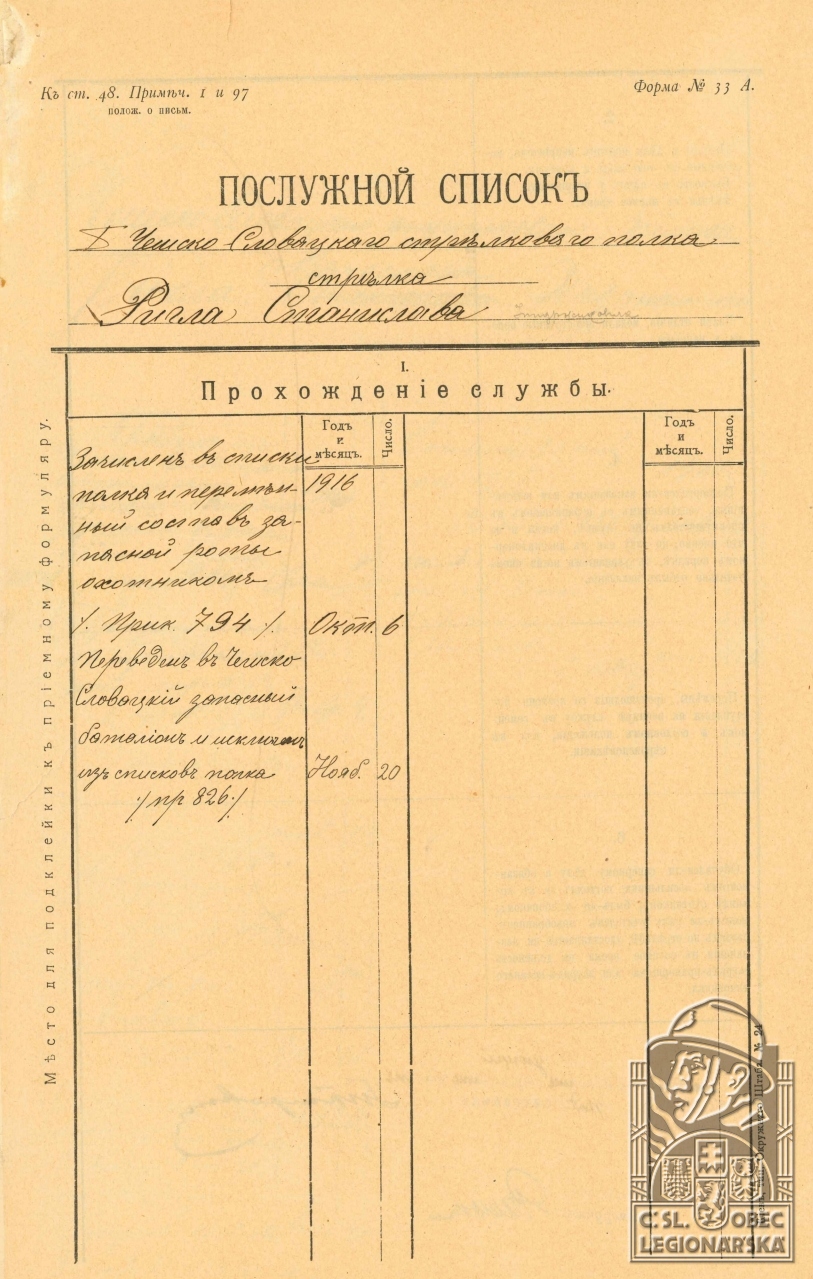 Къ ст. 48. Примѣч. 1 и 97
полож. о письм.
Форма № 33 А.
ПОСЛУЖНОЙ СПИСОКЪ
Чешско Словацкаго стрѣлковаго полка
стрѣлка
Ригла Станислава
I.
Прохожденіе службы.
Годъ
и
мѣсяцъ.
Число.
Годъ
и
мѣсяцъ.
Число.
Зачисленъ въ списки
полка и перемѣн- 1916
ный составъ за-
пасной роты
охотникомъ
/. Прик. 794 /. Окт. 6
Переведенъ въ Чешско
Словацкій запасный
баталіонъ и исключенъ
изъ списковъ полка Нояб. 20
/ пр 826 /
Мѣсто для подклейки къ пріемному формуляру.
Окружн. Штаба. № 24
Č SL. OBEC
LEGIONÁŘSKÁ